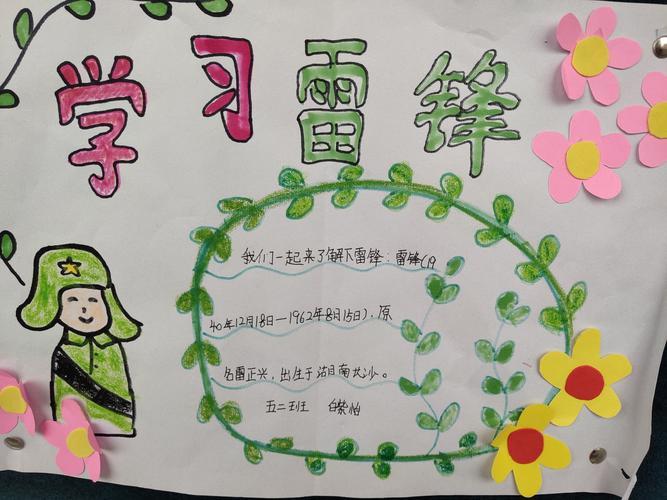 学习雷锋
我们一起来了解下雷锋：雷锋（19
40年12月18日—1962年8月15日），原
名雷正兴，出生于湖南长沙。
五二班 白紫怡